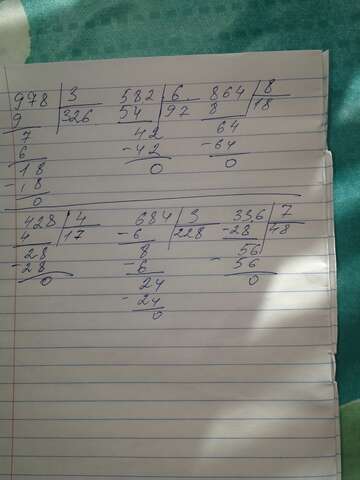 978 | 3 582 | 6 864 | 8
9 326 54 97 8 18
7 42 64
6 -42 -64
18 0 0
-18
0
428 | 4 684 | 3 336 | 7
4 17 -6 228 -28 48
28 8 56
-28 -6 -56
0 24 0
-24
0